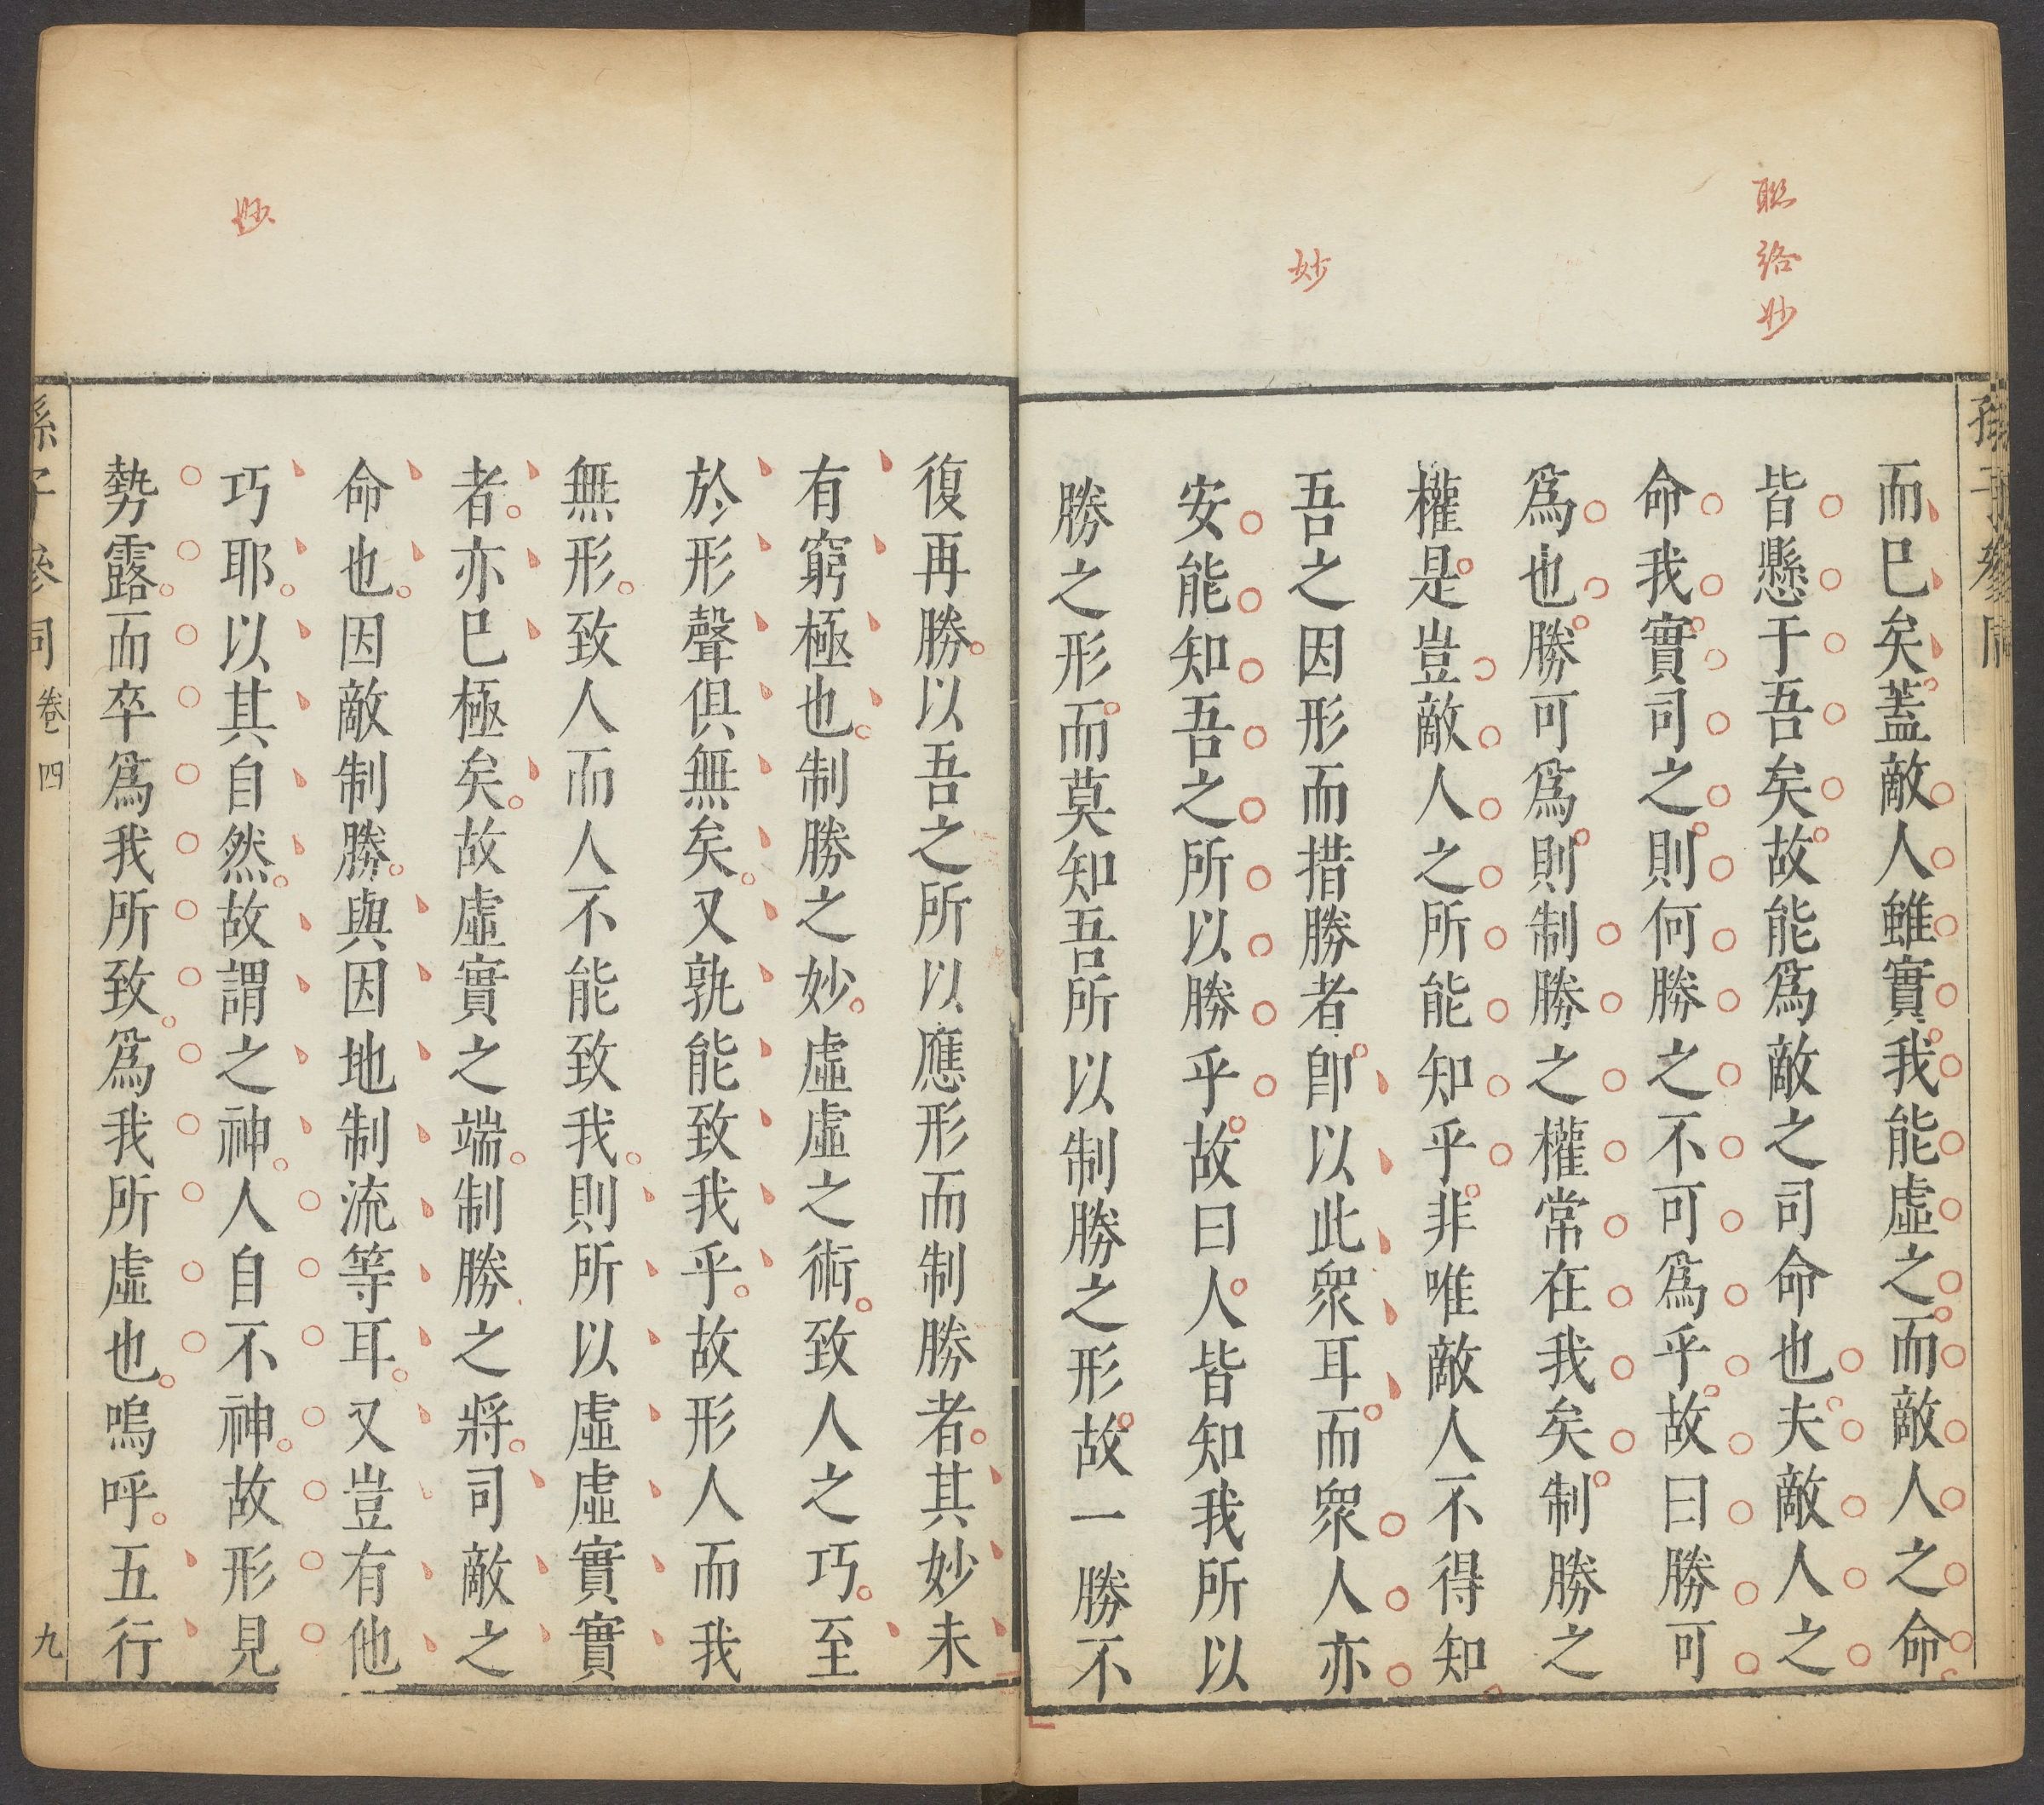 聯絡妙
妙
而巳矣蓋敵人雖實我能虛之而敵人之命
皆懸于吾矣故能爲敵之司命也夫敵人之
命我實司之則何勝之不可爲乎故曰勝可
爲也勝可爲則制勝之權常在我矣制勝之
權是豈敵人之所能知乎非唯敵人不得知
吾之因形而措勝者卽以此眾耳而眾人亦
安能知吾之所以勝乎故曰人皆知我所以
勝之形而莫知吾所以制勝之形故一勝不
妙
復再勝以吾之所以應形而制勝者其妙未
有窮極也制勝之妙虛虛之術致人之巧至
於形聲俱無矣又孰能致我乎故形人而我
無形致人而人不能致我則所以虛虛實實
者亦巳極矣故虛實之端制勝之將司敵之
命也因敵制勝與因地制流等耳又豈有他
巧耶以其自然故謂之神人自不神故形見
勢露而卒爲我所致爲我所虛也嗚呼五行
孫子參同 卷四 九